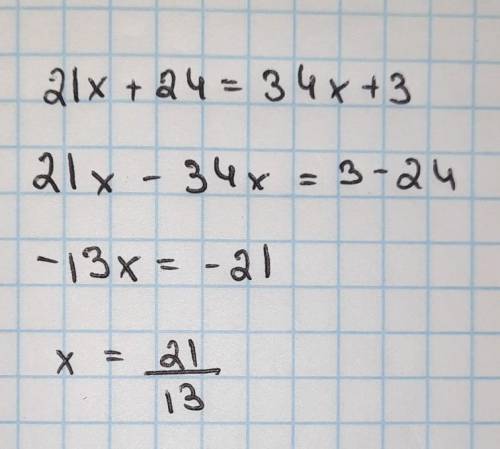 21x + 24 = 34x + 3
21x - 34x = 3 - 24
-13x = -21
x = 21/13